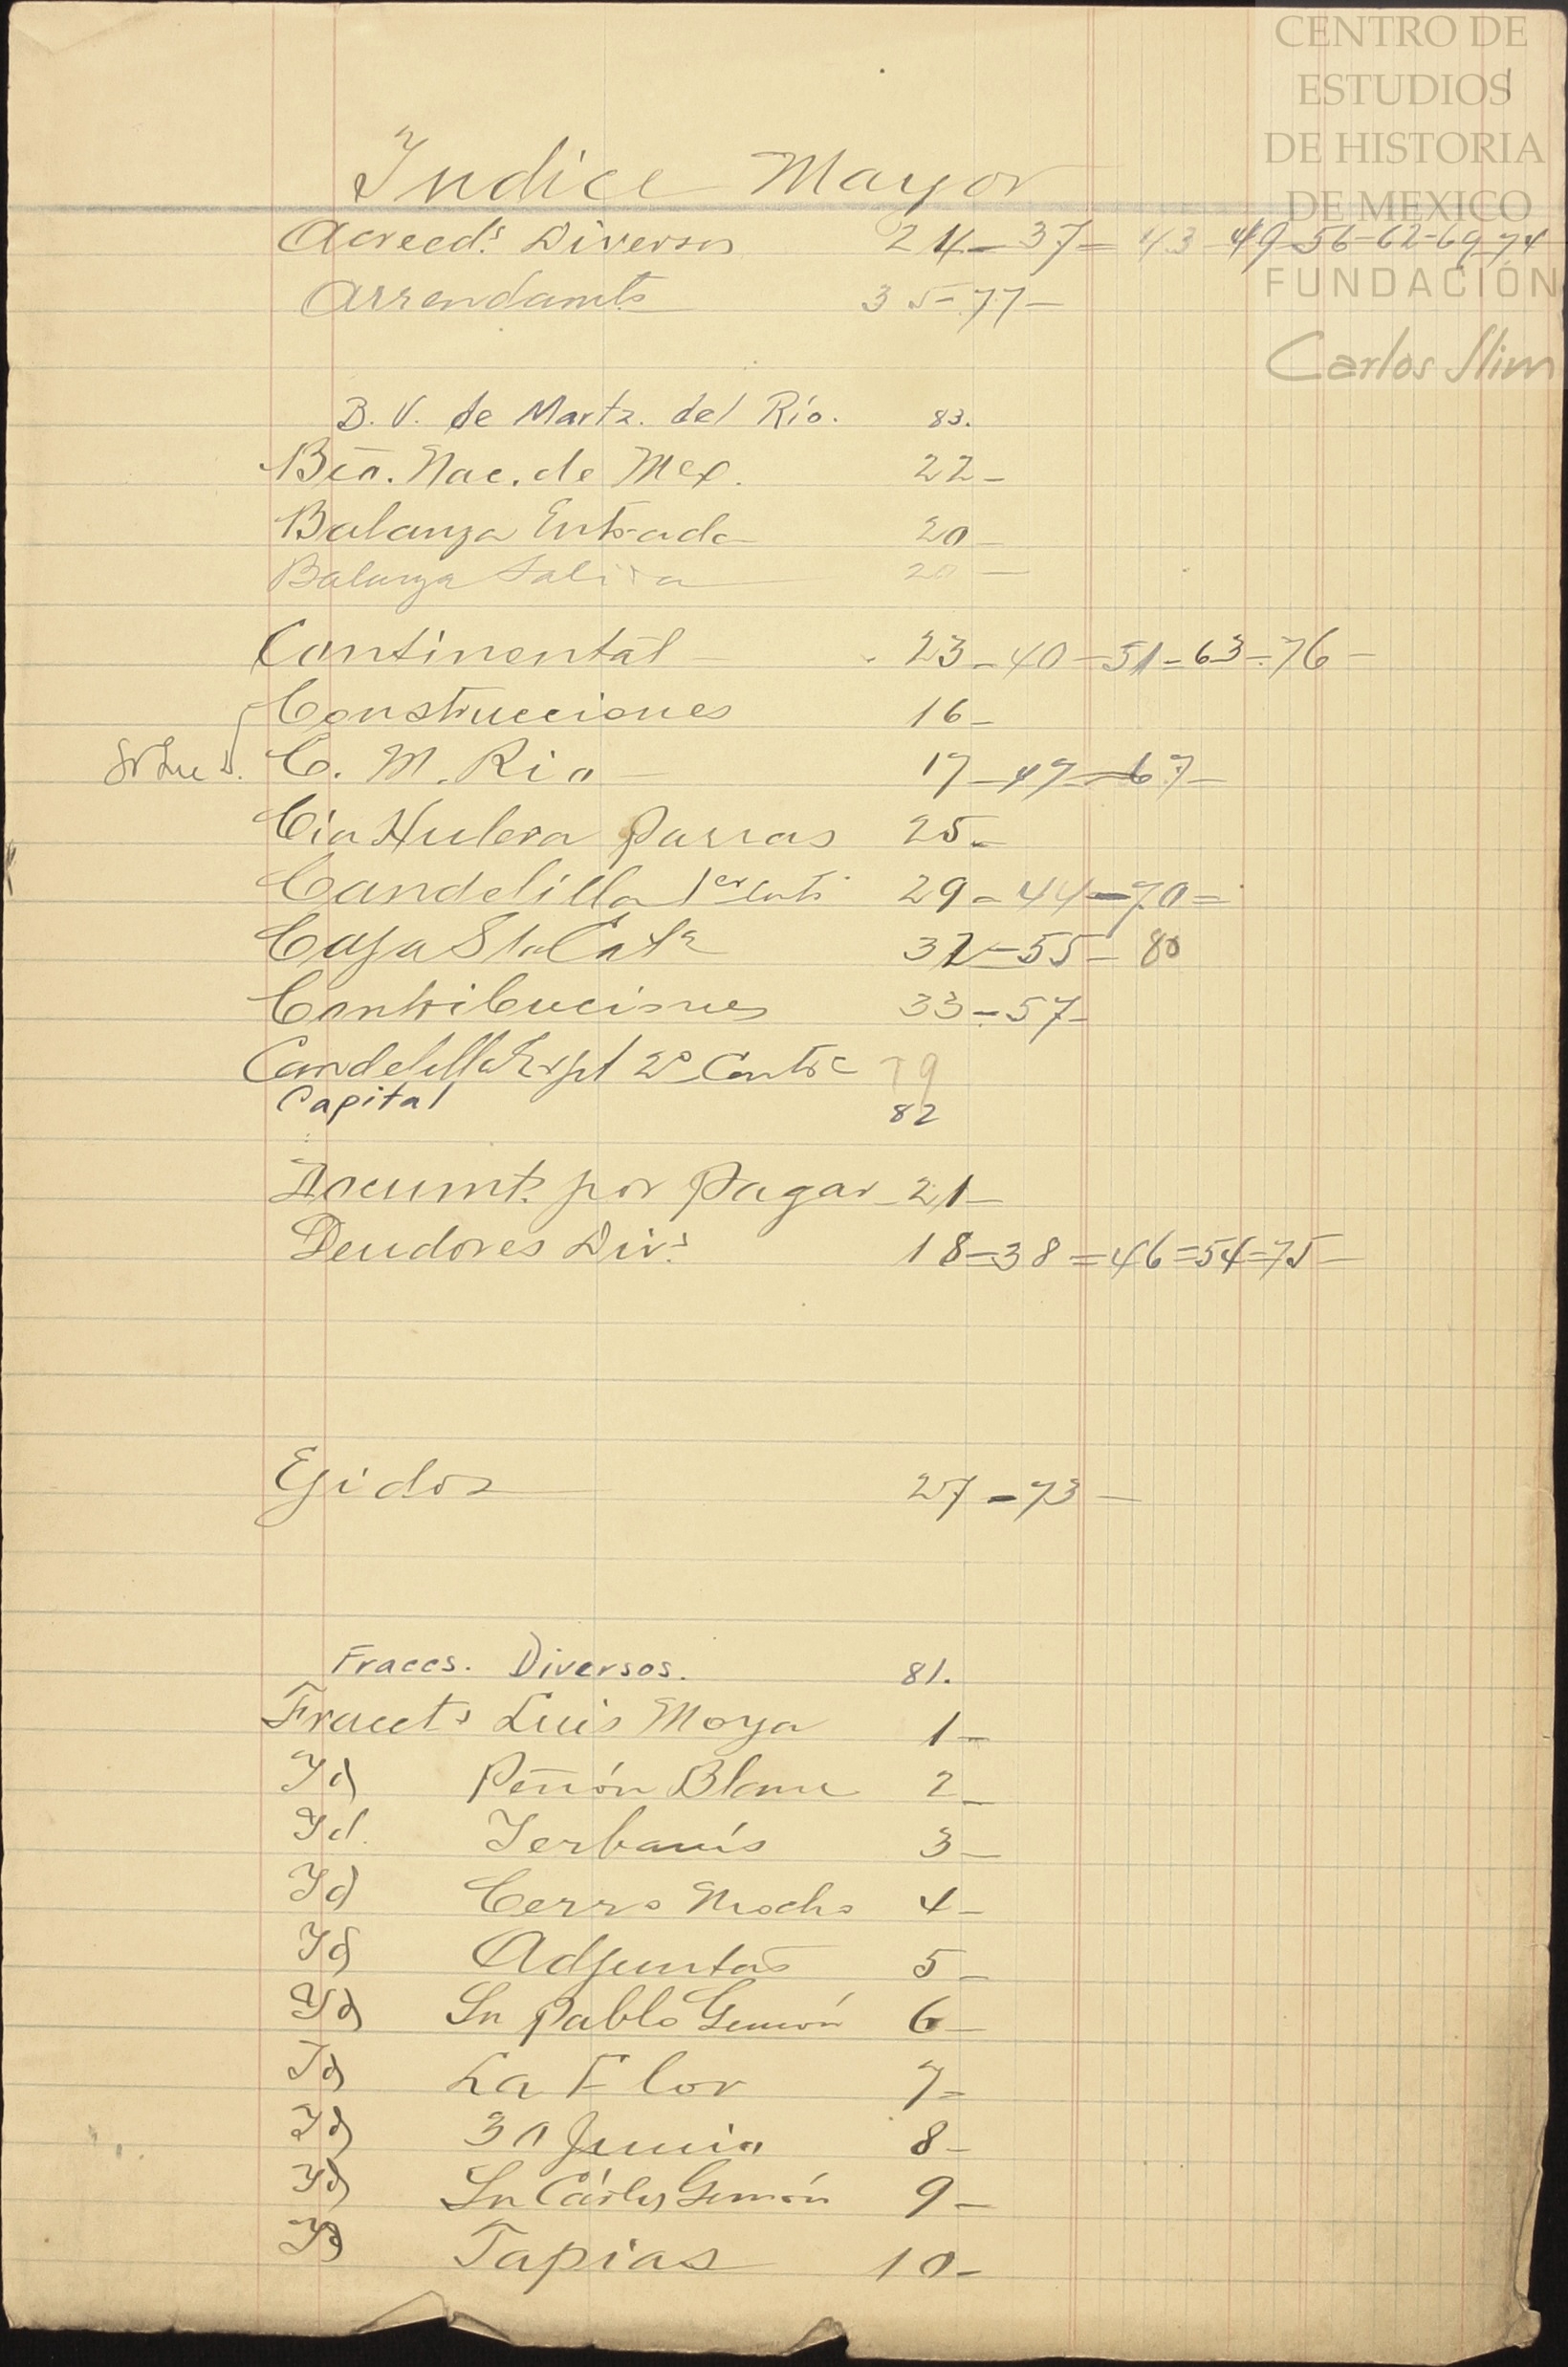 CENTRO DE
ESTUDIOS
DE HISTORIA
DE MEXICO
FUNDACIÓN
Carlos Slim
Indice Mayor
Acreeds. Diversos 24-37=43-49-56-62-69-74
Arrendamts 35-77-
B. V. de Martz. del Río. 83.
Bco. Nac. de Mex. 22-
Balanza Entrada 20-
Balanza Salida 20-
Continental 23-40-51-63-76-
Construcciones 16-
C. M. Rio 17-47-67-
Cia Hulera Parras 25-
Candelilla 1er Cont. 29-44-70-
Caja Sta Cata 32-55-80
Contribuciones 33-57-
Candelilla 2o Contr 79
Capital 82
Documts. por Pagar 21-
Deudores Divs. 18-38=46=54-75-
Ejidos 27-73-
Fraccs. Diversos. 81.
Fraccts Luis Moya 1-
Id Peñón Blanco 2-
Id. Yerbanís 3-
Id Cerro Mocho 4-
Id Adjuntas 5-
Id Sn Pablo Gumón 6-
Id La Flor 7-
Id 30 Junio 8-
Id Sn Cárlos Gumón 9-
Id Tapias 10-